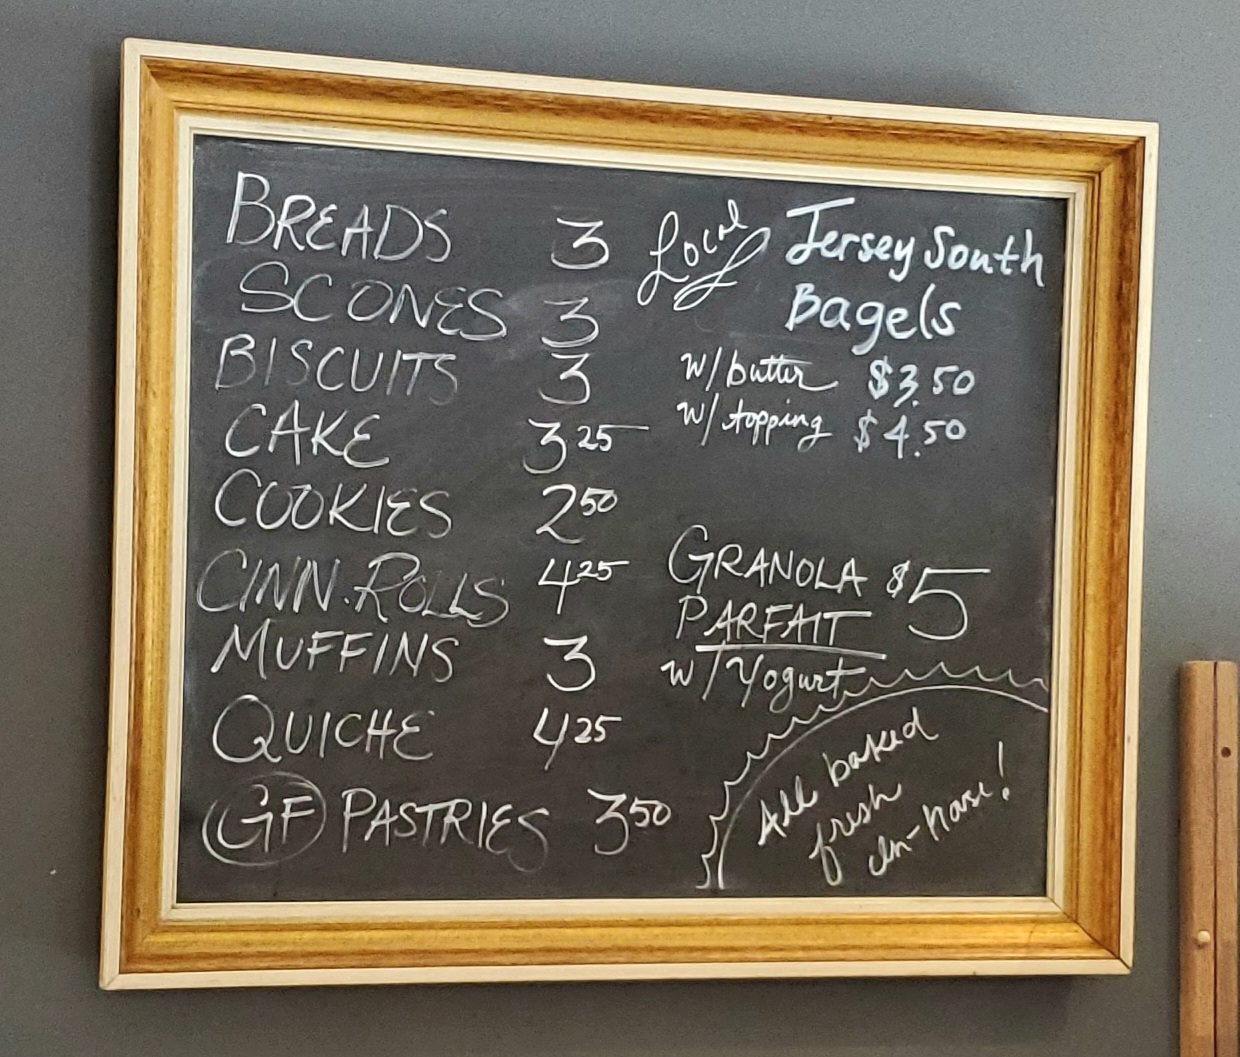 BREADS 3
SCONES 3
BISCUITS 3
CAKE 3 25
COOKIES 2 50
CINN. ROLLS 4 25
MUFFINS 3
QUICHE 4 25
GF PASTRIES 3 50
Local Jersey South
Bagels
w/butter $3.50
w/topping $4.50
GRANOLA $5
PARFAIT
w/Yogurt
All baked
fresh
in-house!